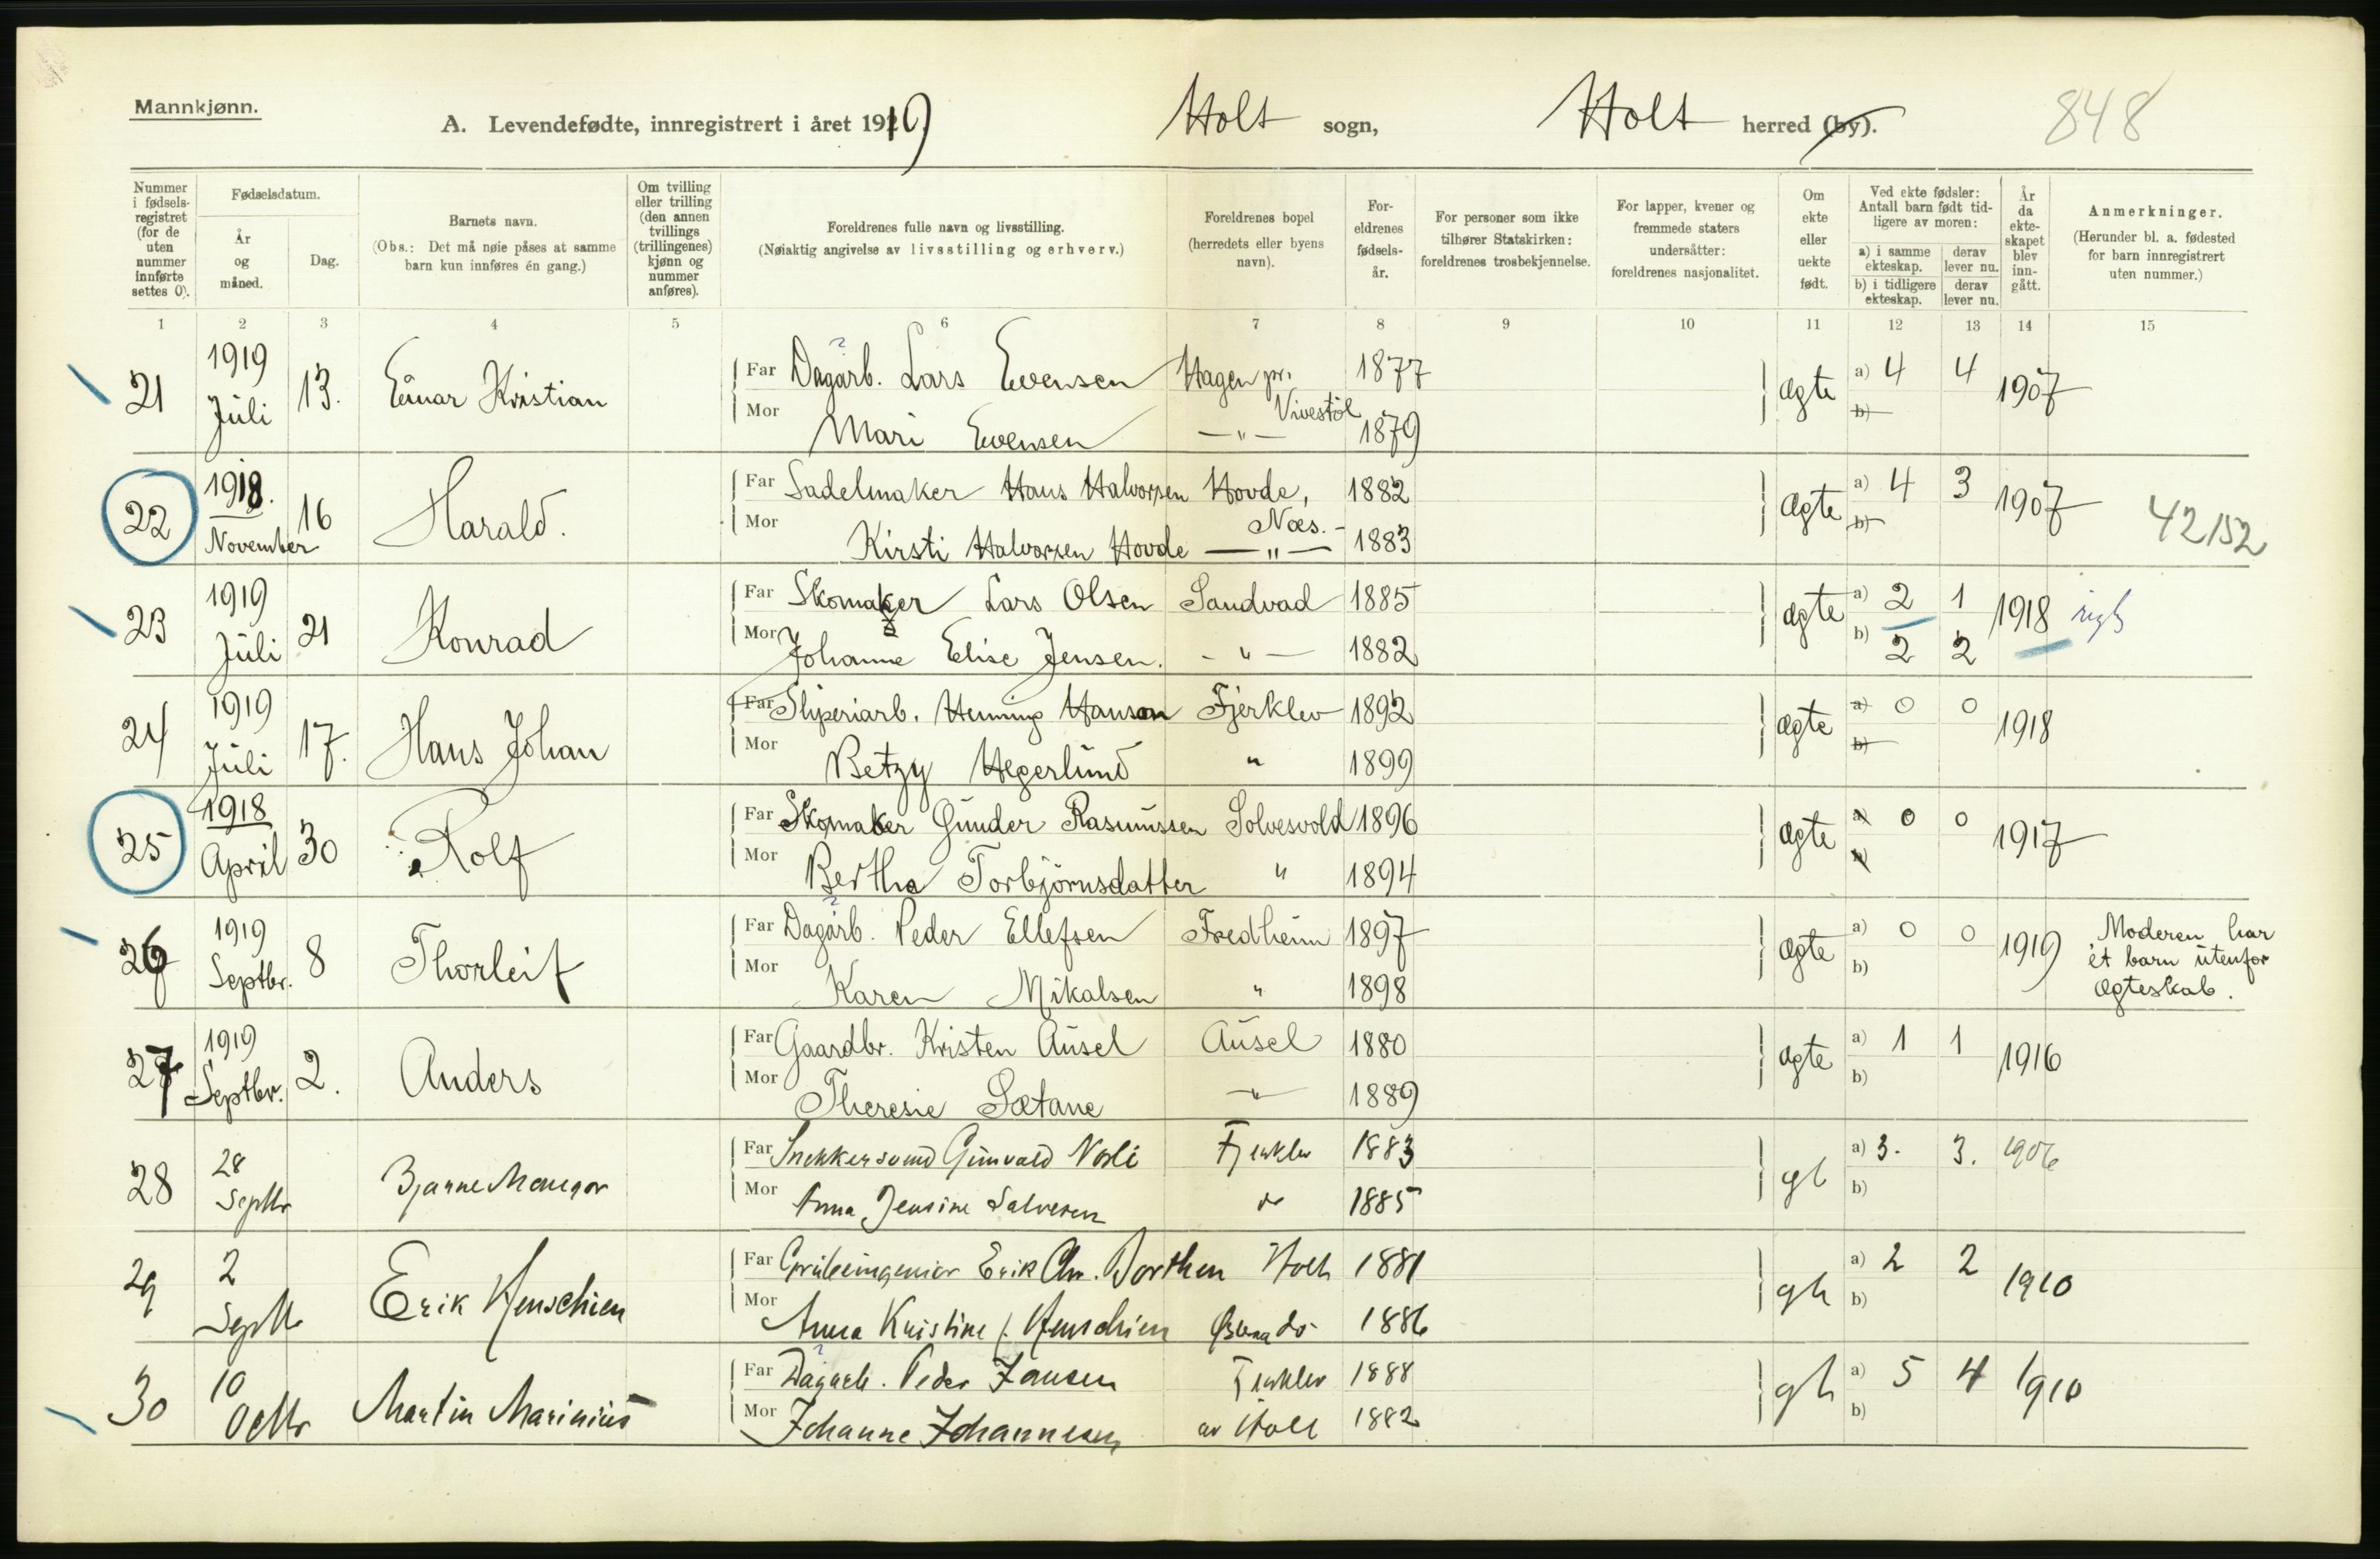 Mannkjønn.
A. Levendefødte, innregistrert i året 1919
Holt sogn, Holt herred (by).
848
Nummer i fødsels-registret (for de uten nummer innførte settes 0).
Fødselsdatum.
År og måned.
Dag.
Barnets navn.
(Obs.: Det må nøie påses at samme barn kun innføres én gang.)
Om tvilling eller trilling (den annen tvillings (trillingenes) kjønn og nummer anføres).
Foreldrenes fulle navn og livsstilling.
(Nøiaktig angivelse av livsstilling og erhverv.)
Foreldrenes bopel (herredets eller byens navn).
For-eldrenes fødsels-år.
For personer som ikke tilhører Statskirken: foreldrenes trosbekjennelse.
For lapper, kvener og fremmede staters undersåtter: foreldrenes nasjonalitet.
Om ekte eller uekte født.
Ved ekte fødsler: Antall barn født tid-ligere av moren:
a) i samme ekteskap. derav lever nu.
b) i tidligere ekteskap. derav lever nu.
År da ekte-skapet blev inn-gått.
Anmerkninger.
(Herunder bl. a. fødested for barn innregistrert uten nummer.)
1 2 3 4 5 6 7 8 9 10 11 12 13 14 15
21 1919 Juli 13. Einar Kristian
Far Dagarb. Lars Evensen Hagen pr. Vivestöl 1877
Mor Mari Evensen —"— 1879
ægte a) 4 4 b) 1907
22 1918. November 16 Harald.
Far Sadelmaker Hans Halvorsen Hovde, Næs. 1882
Mor Kirsti Halvorsen Hovde —"— 1883
ægte a) 4 3 b) 1907 42152
23 1919 Juli 21 Konrad
Far Skomaker Lars Olsen Sandvad 1885
Mor Johanne Elise Jensen. -"- 1882
ægte a) 2 1 b) 2 2 1918
24 1919 Juli 17. Hans Johan
Far Sliperiarb. Henning Hanson Fjerklev 1892
Mor Betzy Hegerlund " 1899
ægte a) 0 0 b) 1918
25 1918 April 30 Rolf
Far Skomaker Gunder Rasmussen Solvesvold 1896
Mor Bertha Torbjörnsdatter " 1894
ægte a) 0 0 b) 1917
26 1919 Septbr. 8 Thorleif
Far Dagarb. Peder Ellefsen Fredheim 1897
Mor Karen Mikalsen " 1898
ægte a) 0 0 b) 1919 Moderen har et barn utenfor ægteskab.
27 1919 Septbr. 2. Anders
Far Gaardbr. Kristen Ausel Ausel 1880
Mor Theresie Sætane —"— 1889
ægte a) 1 1 b) 1916
28 28 Septbr Bjarne Mangor
Far Snekkersvend Gunvald Nosli Fjerklev 1883
Mor Anna Jensine Salvesen do 1885
a) 3. 3. b) 1906
29 2 Septbr Erik Henschien
Far Grubeingeniør Erik Chr. Dorthen Holt 1881
Mor Anna Kristine f. Henschien do 1886
a) 2 2 b) 1910
30 10 Octbr Martin Marinius
Far Dagarb. Peder Jansen Fjerklev 1888
Mor Johanne Johannesen av Holt 1882
a) 5 4 b) 1910